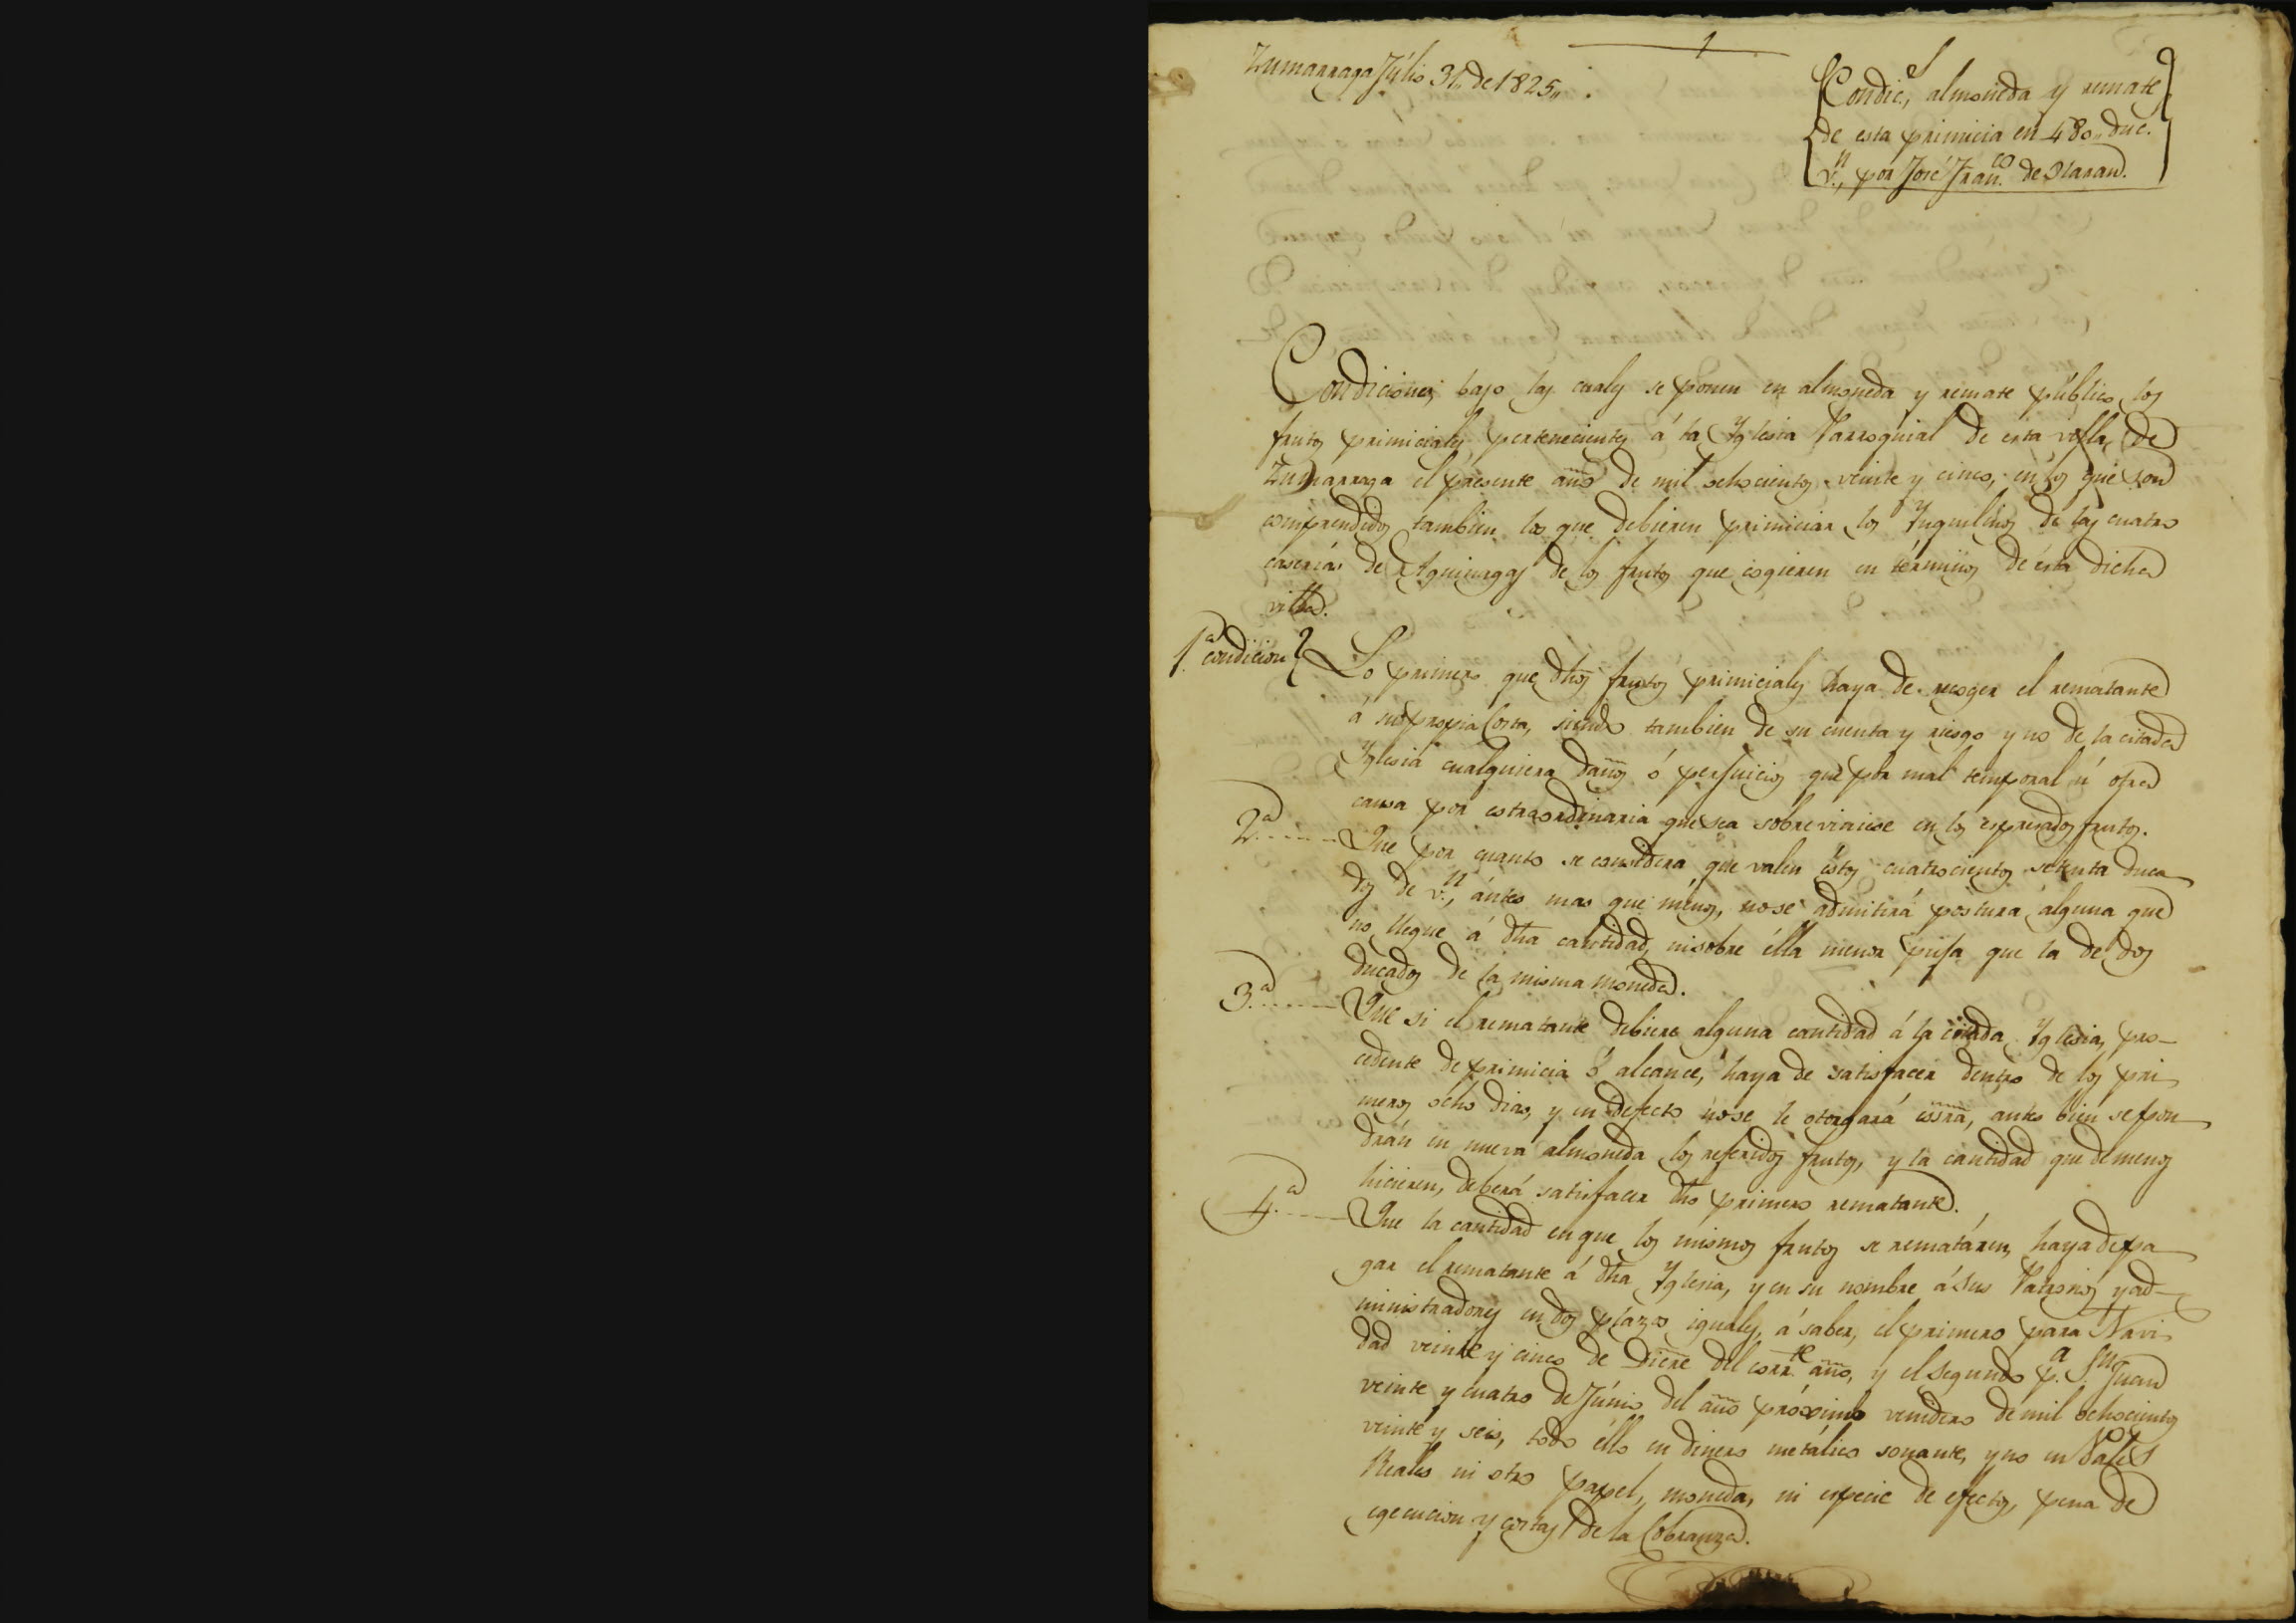 1
Zumarraga Júlio 31,, de 1825,,.
Condic.s, almoneda y remate
de esta primicia en 480,, duc.
v.n, por José Fran.co de Olaran.
Condiciones bajo las cuales se ponen en almoneda y remate público los
frutos primiciales pertenecientes á la Yglesia Parroquial de esta villa de
Zumarraga el presente año de mil ochocientos veinte y cinco, en los que son
comprendidos tambien los que debieren primiciar los Ynquilinos de las cuatro
caserías de Aguinagas de los frutos que cogieren en términos de ésta dicha
villa.
1.a condicion Lo primero que dhos frutos primiciales haya de recoger el rematante
á su propia Costa, siendo tambien de su cuenta y riesgo y no de la citada
Yglesia cualquiera daños ó perjuicios que por mal temporal ú otra
causa por estraordinaria que sea sobreviniese en los espresados frutos.
2.a Que por cuanto se considera que valen éstos cuatrocientos setenta duca
dos de v.n, ántes mas que ménos, no se admitirá postura alguna que
no llegue á dha cantidad, ni sobre élla menor puja que la de dos
ducados de la misma moneda.
3.a Que si el rematante debiere alguna cantidad á la citada Yglesia, pro-
cedente de primicia ó alcance, haya de satisfacer dentro de los pri
meros ocho dias, y en defecto no se le otorgará essra, antes bien se pon
drán en nueva almoneda los referidos frutos, y la cantidad que de menos
hicieren, deberá satisfacer dho primero rematante.
4.a Que la cantidad en que los mismos frutos se rematáren, haya de pa
gar el rematante á dha Yglesia, y en su nombre á sus Patronos y ad-
ministradores en dos plazos iguales, á saber, el primero para Navi
dad veinte y cinco de Dicre del corr.te año, y el segundo p.a S.n Juan
veinte y cuatro de Júnio del año próximo venidero de mil ochocientos
veinte y seis, todo éllo en dinero metálico sonante, y no en Vales
Reales ni otro papel, moneda, ni especie de efectos, pena de
egecucion y costas de la Cobranza.